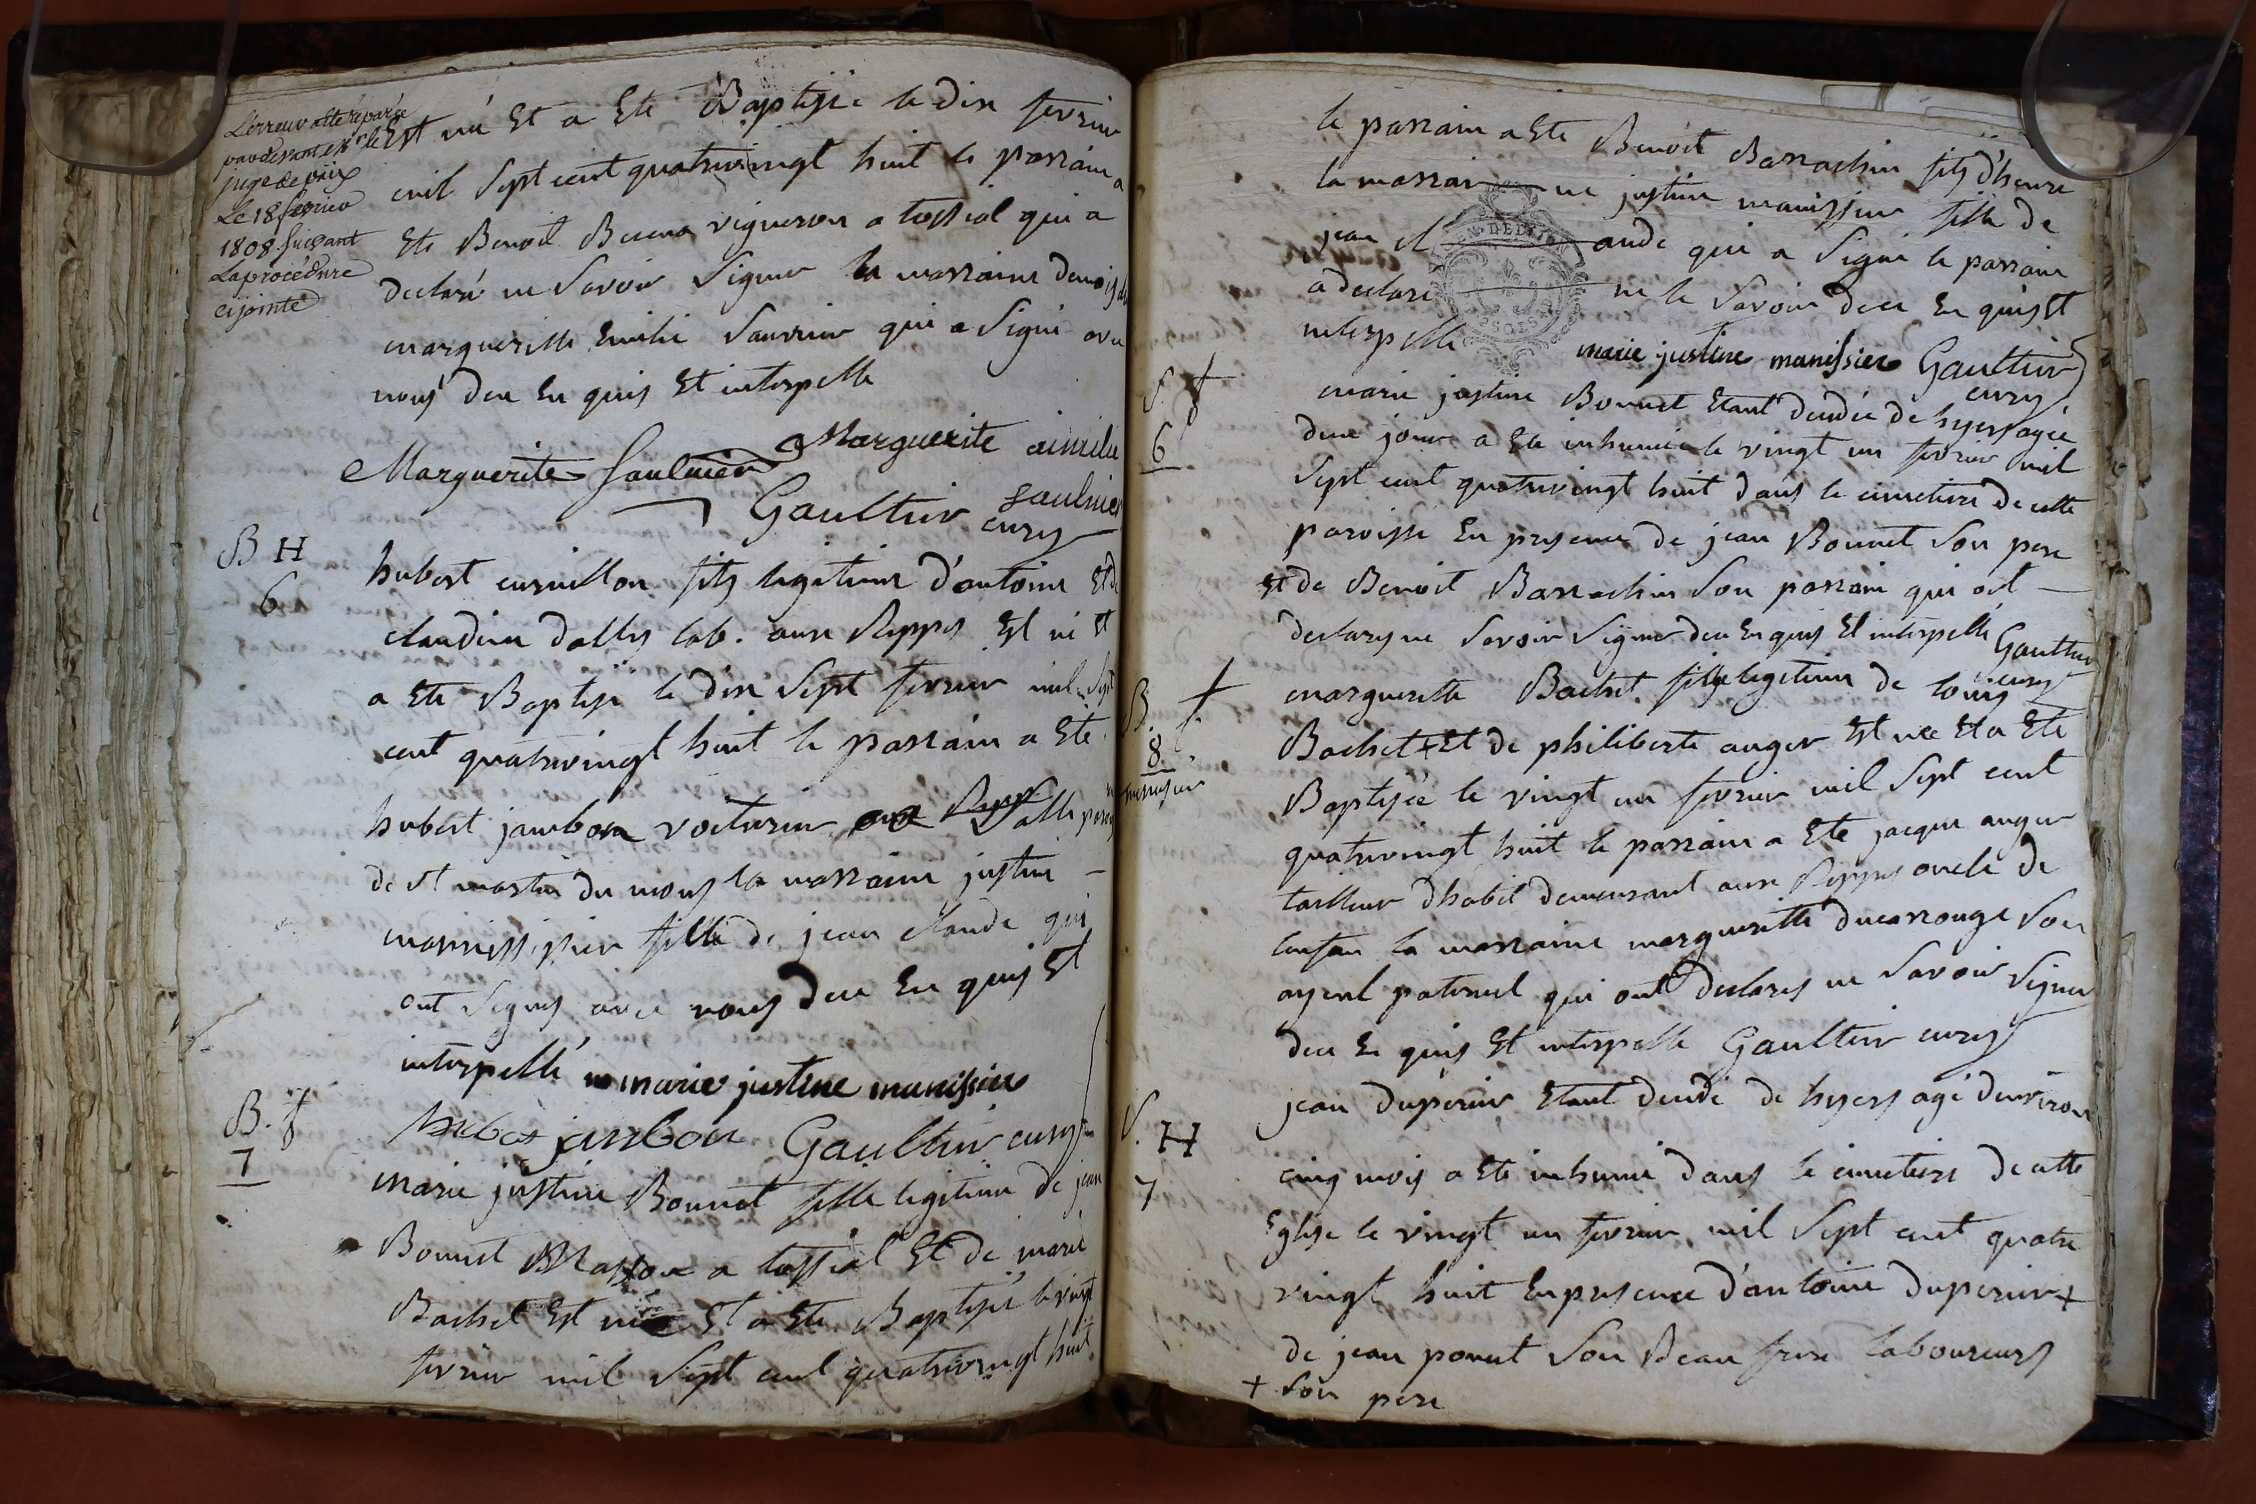 L'erreur a été réparée
par devant m.r le
juge de paix
Le 18 fevrier
1808 suivant
La procédure
cijointe
Est né Et a Ete Baptisé le dix fevrier
mil sept cent quatrevingt huit le parrain a
Ete Benoit vigneron a tossial qui a
declaré ne savoir signer la marraine
margueritte Emilie saunier qui a signé avec
nous deu En quis Et interpellé
Marguerite Saulnier Marguerite aimelie
saulnier
Gaultier curé
B H
6
hubert curnillon fils legitime d'antoine Et de
claudine dallys lab. aux Rippes Est né Et
a Ete Baptisé le dix sept fevrier mil sept
cent quatrevingt huit le parrain a Ete
hubert jambon voiturier
de st martin du mont la marraine justine
manissier fille de jean claude qui
ont signés avec nous deu En quis Et
interpellé marie justine manissier
hubert janbon Gaultier curé
B. f
7
marie justine Bonnet fille legitime de jean
Bonnet Masson a tossial Et de marie
Bachet Est née Et a Ete Baptisée le vingt
fevrier mil sept cent quatrevingt huit
le parrain a Ete Benoit Barrachin fils d'henri
la marrai ne justine manissier fille de
jean cl aude qui a signé le parrain
a declaré ne le savoir deu En quis Et
interpellé
marie justine manissier Gaultier
curé
S. f
6
marie justine Bonnet Etant decedée de hyers agée
deux jours a Ete inhumée le vingt un fevrier mil
sept cent quatrevingt huit dans le cimetiere de cette
paroisse En presence de jean Bonnet son pere
Et de Benoit Barrachin son parrain qui ont
declarés ne savoir signer deu En quis Et interpellé Gaultier
curé
B. f
8
margueritte Bachet fille legitime de louis
Bachet + Et de philiberte auger Est née Et a Ete
Baptisée le vingt un fevrier mil sept cent
quatrevingt huit le parrain a Ete jacque auger
tailleur d'habit demeurant aux Rippes oncle de
lenfan la marraine margueritte ducarrouge son
ayeul paternel qui ont declarés ne savoir signer
deu En quis Et interpellé Gaultier curé
S. H
7
jean duperier Etant decedé de hyers agé d'environ
cinq mois a Ete inhumé dans le cimetiere de cette
Eglise le vingt un fevrier mil sept cent quatre
vingt huit En presence d'antoine duperier +
de jean ponut son Beau frere laboureurs
+ son pere